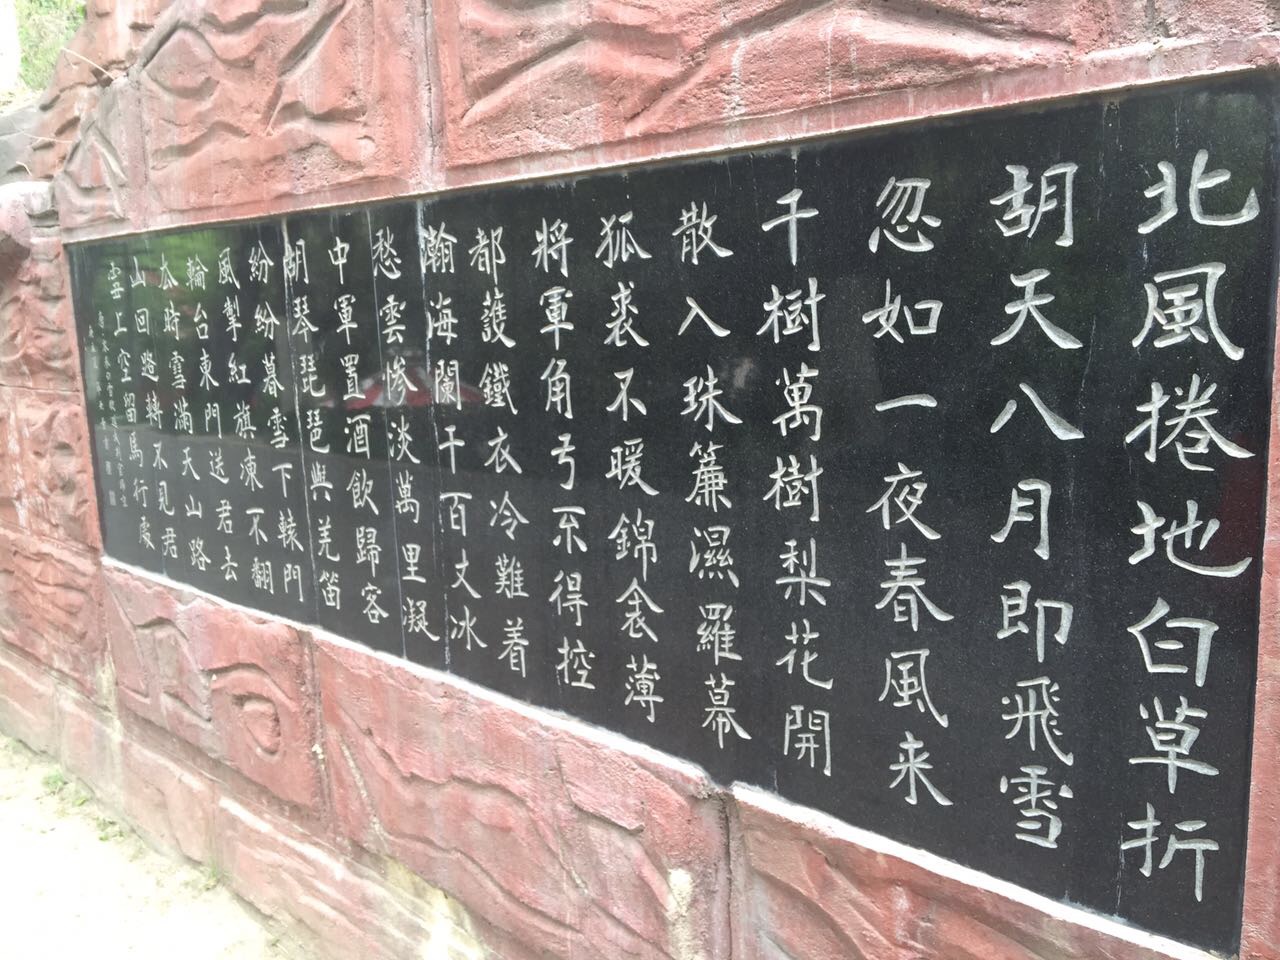 北風捲地白草折
胡天八月即飛雪
忽如一夜春風来
千樹萬樹梨花開
散入珠簾濕羅幕
狐裘不暖錦衾薄
將軍角弓不得控
都護鐵衣冷難着
瀚海闌干百丈冰
愁雲慘淡萬里凝
中軍置酒飲歸客
胡琴琵琶與羌笛
紛紛暮雪下轅門
風掣紅旗凍不翻
輪台東門送君去
去時雪滿天山路
山回路轉不見君
雪上空留馬行處